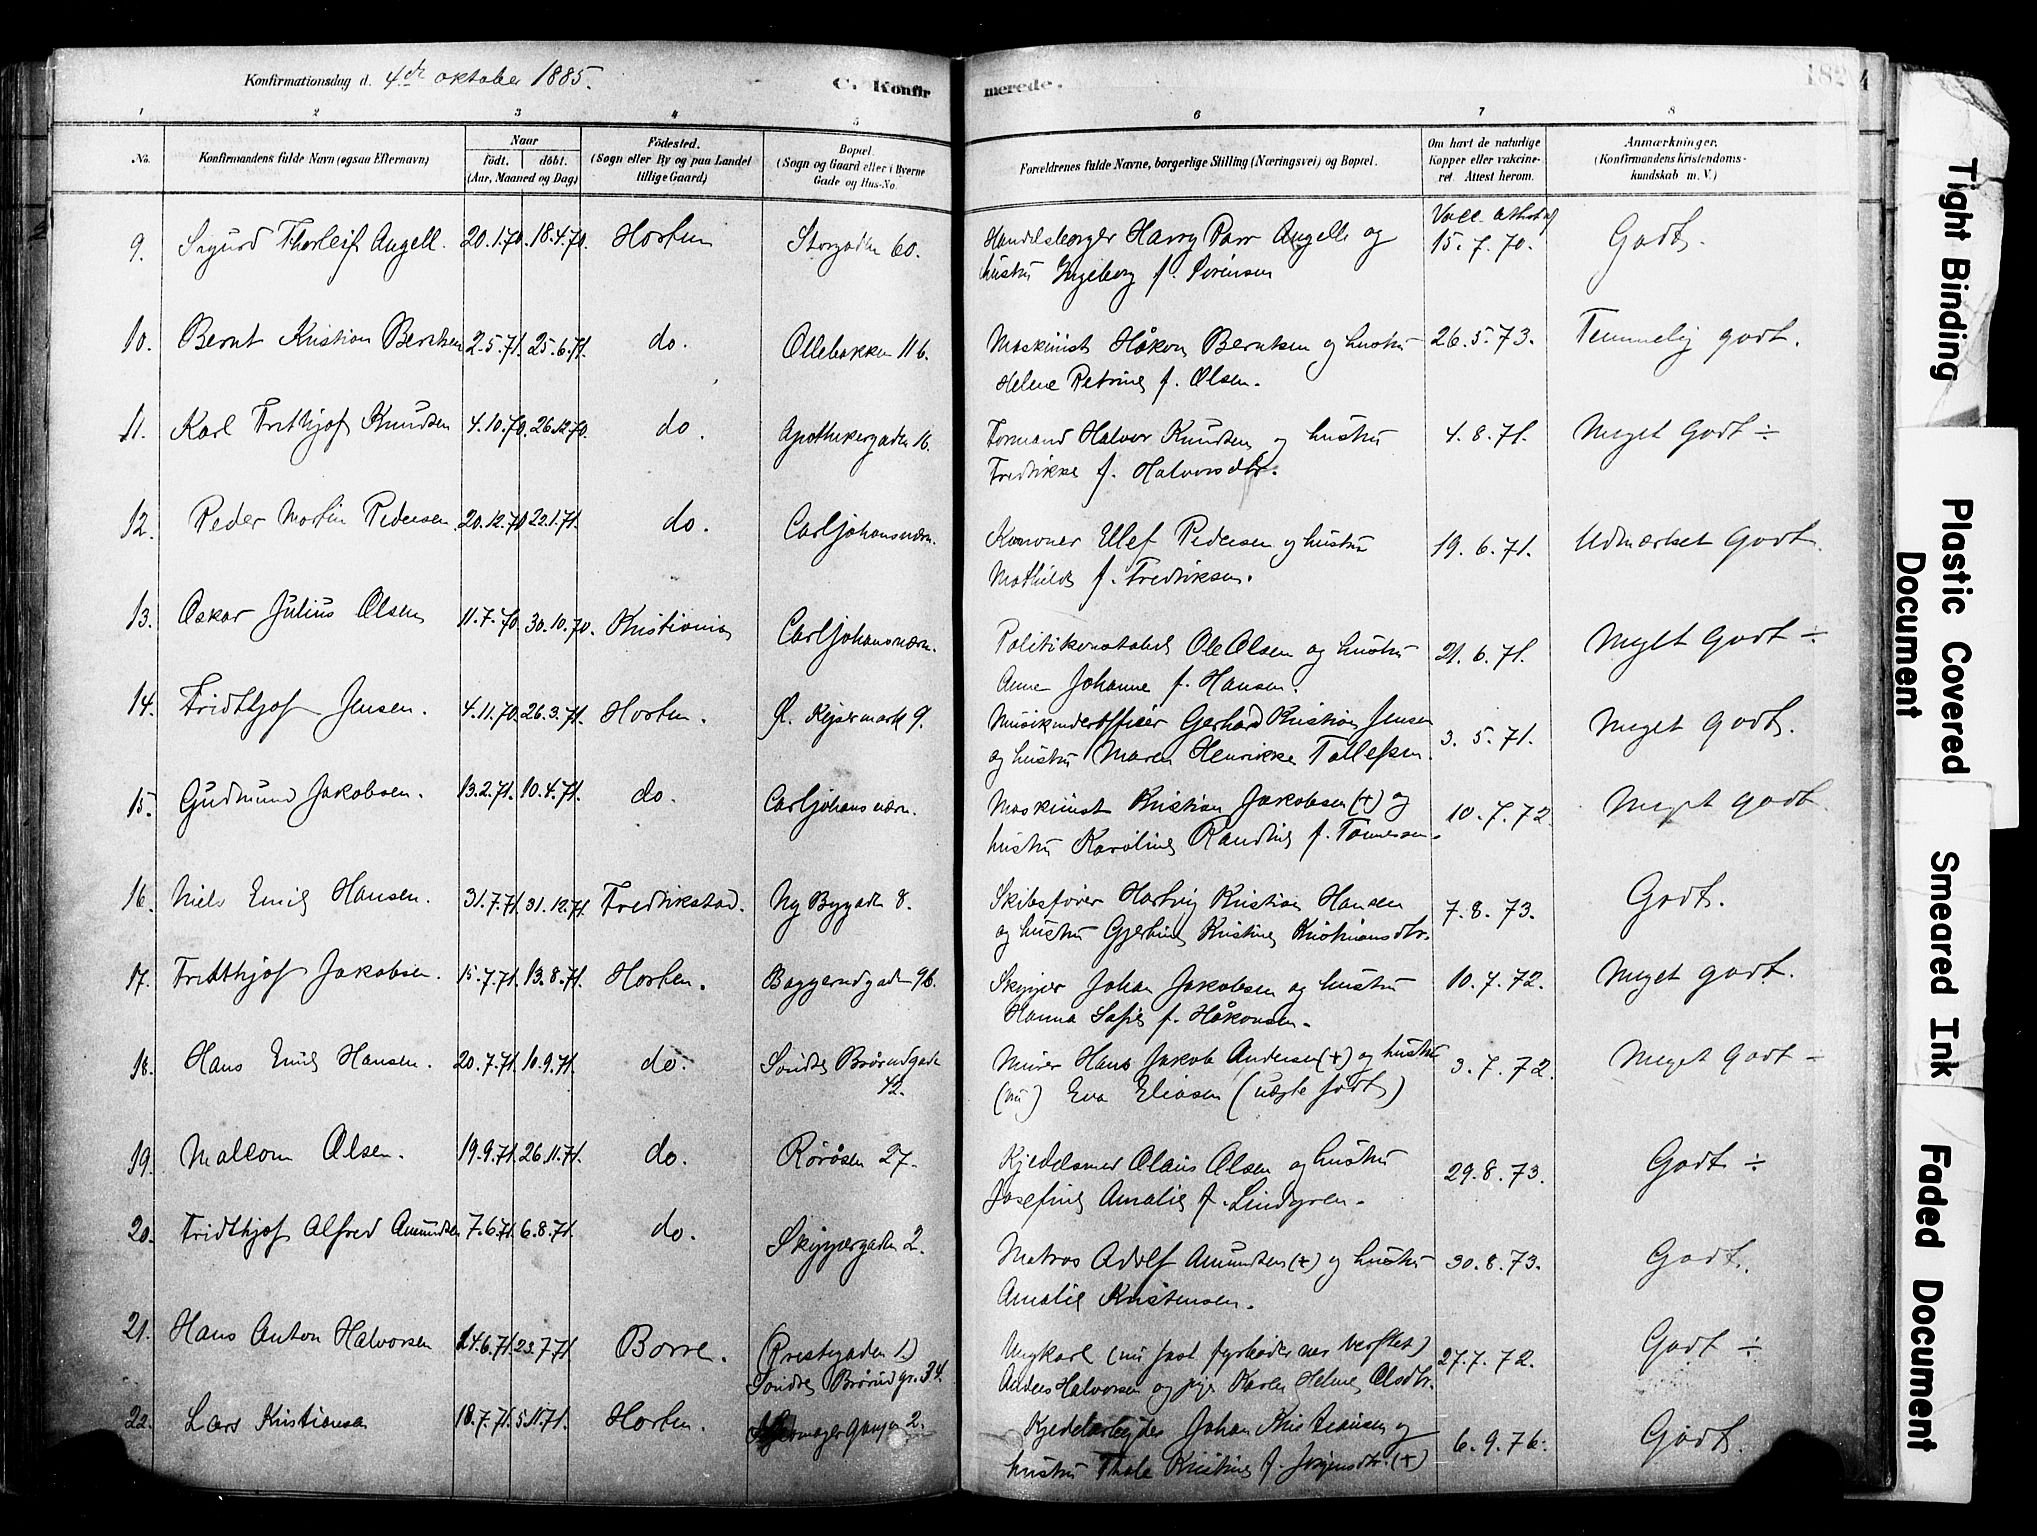 Konfirmationsdag d. 4de oktober 1885.
C. Konfir
merede.
182
1 2 3 4 5 6 7 8
No.
Konfirmandens fulde Navn (ogsaa Efternavn)
Naar
födt. döbt.
(Aar, Maaned og Dag)
Födested.
(Sogn eller By og paa Landet
tillige Gaard)
Bopæl.
(Sogn og Gaard eller i Byerne
Gade og Hus-No.
Forældrenes fulde Navne, borgerlige Stilling (Næringsvei) og Bopæl.
Om havt de naturlige
Kopper eller vakcine-
ret. Attest herom.
Anmærkninger.
(Konfirmandens Kristendoms-
kundskab m. V.)
9. Sigurd Thorleif Angell. 20.1.70. 18.4.70. Horten Storgaden 60. Handelsborger Harry Parr Angell og Vacc. attest af 15.7.70. Godt.
hustru Ingeborg f. Sörensen
10. Bernt Kristian Berntsen 2.5.71. 25.6.71. do. Ollebakken 116. Maskinist Håkon Berntsen og hustru 26.5.73. Temmelig godt.
Helene Petrine f. Olsen.
11. Karl Frithjof Knudsen 4.10.70. 26.12.70. do. Apothekergaden 16. Formand Halvor Knudsen og hustru 4.8.71. Meget Godt ÷
Fredrikke f. Halvorsdtr.
12. Peder Martin Pedersen 20.12.70 22.1.71. do. Carljohansværn. Kanoner Ulef Pedersen og hustru 19.6.71. Udmærket Godt.
Mathilde f. Fredriksen.
13. Oskar Julius Olsen 11.7.70 30.10.70. Kristiania Carljohansværn. Politikonstabel Ole Olsen og hustru 21.6.71. Meget Godt ÷
Anne Johanne f. Hansen.
14. Fridthjof Jensen. 4.11.70. 26.3.71. Horten. Ø. Keisermark 9. Musikunderofficier Gerhard Kristian Jensen 3.5.71. Meget godt.
og hustru Maren Henrikke Tollefsen.
15. Gudmund Jakobsen. 13.2.71. 10.4.71. do. Carljohansværn. Maskinist Kristian Jakobsen (+) og 10.7.72. Meget godt.
hustru Karoline Randine f. Tønnesen.
16. Niels Emil Hansen. 31.7.71. 31.12.71. Fredrikstad. Ny Bygaden 8. Skibsfører Hartvig Kristian Hansen 7.8.73. Godt.
og hustru Gjertine Kristine Kristiansdtr.
17. Fridthjof Jakobsen. 15.7.71. 13.8.71. Horten. Baggerudgaden 96. Skipper Johan Jakobsen og hustru 10.7.72. Meget godt.
Hanna Sofie f. Håkonsen.
18. Hans Emil Hansen. 20.7.71. 10.9.71. do. Söndre Brårudgade Murer Hans Jakob Andersen (+) og hustru 3.7.72. Meget Godt ÷
42. (nu) Eva Eliasen (uægte født)
19. Malcom Olsen. 19.9.71. 26.11.71. do. Røråsen 27. Kjedelsmed Olaus Olsen og hustru 29.8.73. Godt ÷
Josefine Amalie f. Lindgren.
20. Fridthjof Alfred Amundsen 7.6.71. 6.8.71. do. Skippergaden 2. Matros Adolf Amundsen (+) og hustru 30.8.73. Godt.
Amalie Kristensen.
21. Hans Anton Halvorsen 14.6.71. 23.7.71. Borre. (Prestegaden 1.) Ungkarl (nu fast fyrbøder ver Verftet) 27.7.72. Godt ÷
Söndre Brårudg. 34. Anders Halvorsen og pige Karen Helene Olsdtr.
22. Lars Kristiansen 18.7.71. 5.11.71. Horten. 2. Kjedelarbejder Johan Kristiansen og 6.9.76. Godt.
hustru Thale Kristine f. Jørgensdtr. (+)
Tight Binding
Plastic Covered
Document
Smeared Ink
Faded Document